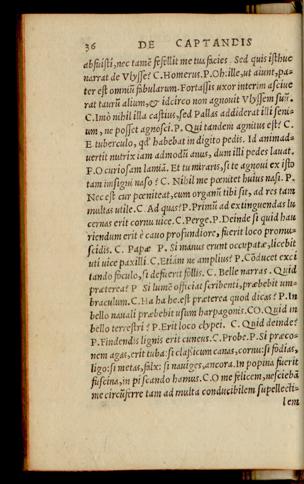 36 DE CAPTANDIS
abfuisti, nec tamẽ fefellit me tua facies. Sed quis isthuc
narrat de Vlysse? C. Homerus. P. Oh: ille, ut aiunt, pa-
ter est omniũ fabularum. Fortassis uxor interim asciue
rat taurũ alium, & idcirco non agnouit Vlyssem suũ.
C. Imò nihil illa castius, sed Pallas addiderat illi seni-
um, ne posset agnosci. P. Qui tandem agnitus est? C.
E tuberculo, qđ habebat in digito pedis. Id animad-
uertit nutrix iam admodũ anus, dum illi pedes lauat.
P. O curiosam lamiã. Et tu miraris, si te agnoui ex isto
tam insigni naso? C. Nihil me pœnitet huius nasi. P.
Nec est cur pœniteat, cum organũ tibi sit, ad res tam
multas utile. C. Ad quas? P. Primũ ad extinguendas lu
cernas erit cornu uice. C. Perge. P. Deinde si quid hau
riendum erit è cauo profundiore, fuerit loco promu-
scidis. C. Papæ P. Si manus erunt occupatæ, licebit
uti uice paxilli. C. Etiam ne amplius? P. Cõducet exci
tando foculo, si defuerit follis. C. Belle narras. Quid
præterea? P Si lumẽ officiat scribenti, præbebit um-
braculum. C. Ha ha he. est præterea quod dicas? P. In
bello nauali præbebit usum harpagonis. CO. Quid in
bello terrestri? P. Erit loco clypei. C. Quid deinde?
P. Findendis lignis erit cuneus. C. Probe. P. Si præco-
nem agas, erit tuba: si classicum canas, cornu: si fodias,
ligo: si metas, falx: si nauiges, ancora. In popina fuerit
fuscina, in piscando hamus. C. O me felicem, nesciebã
me circũferre tam ad multa conducibilem supellecti-
lem